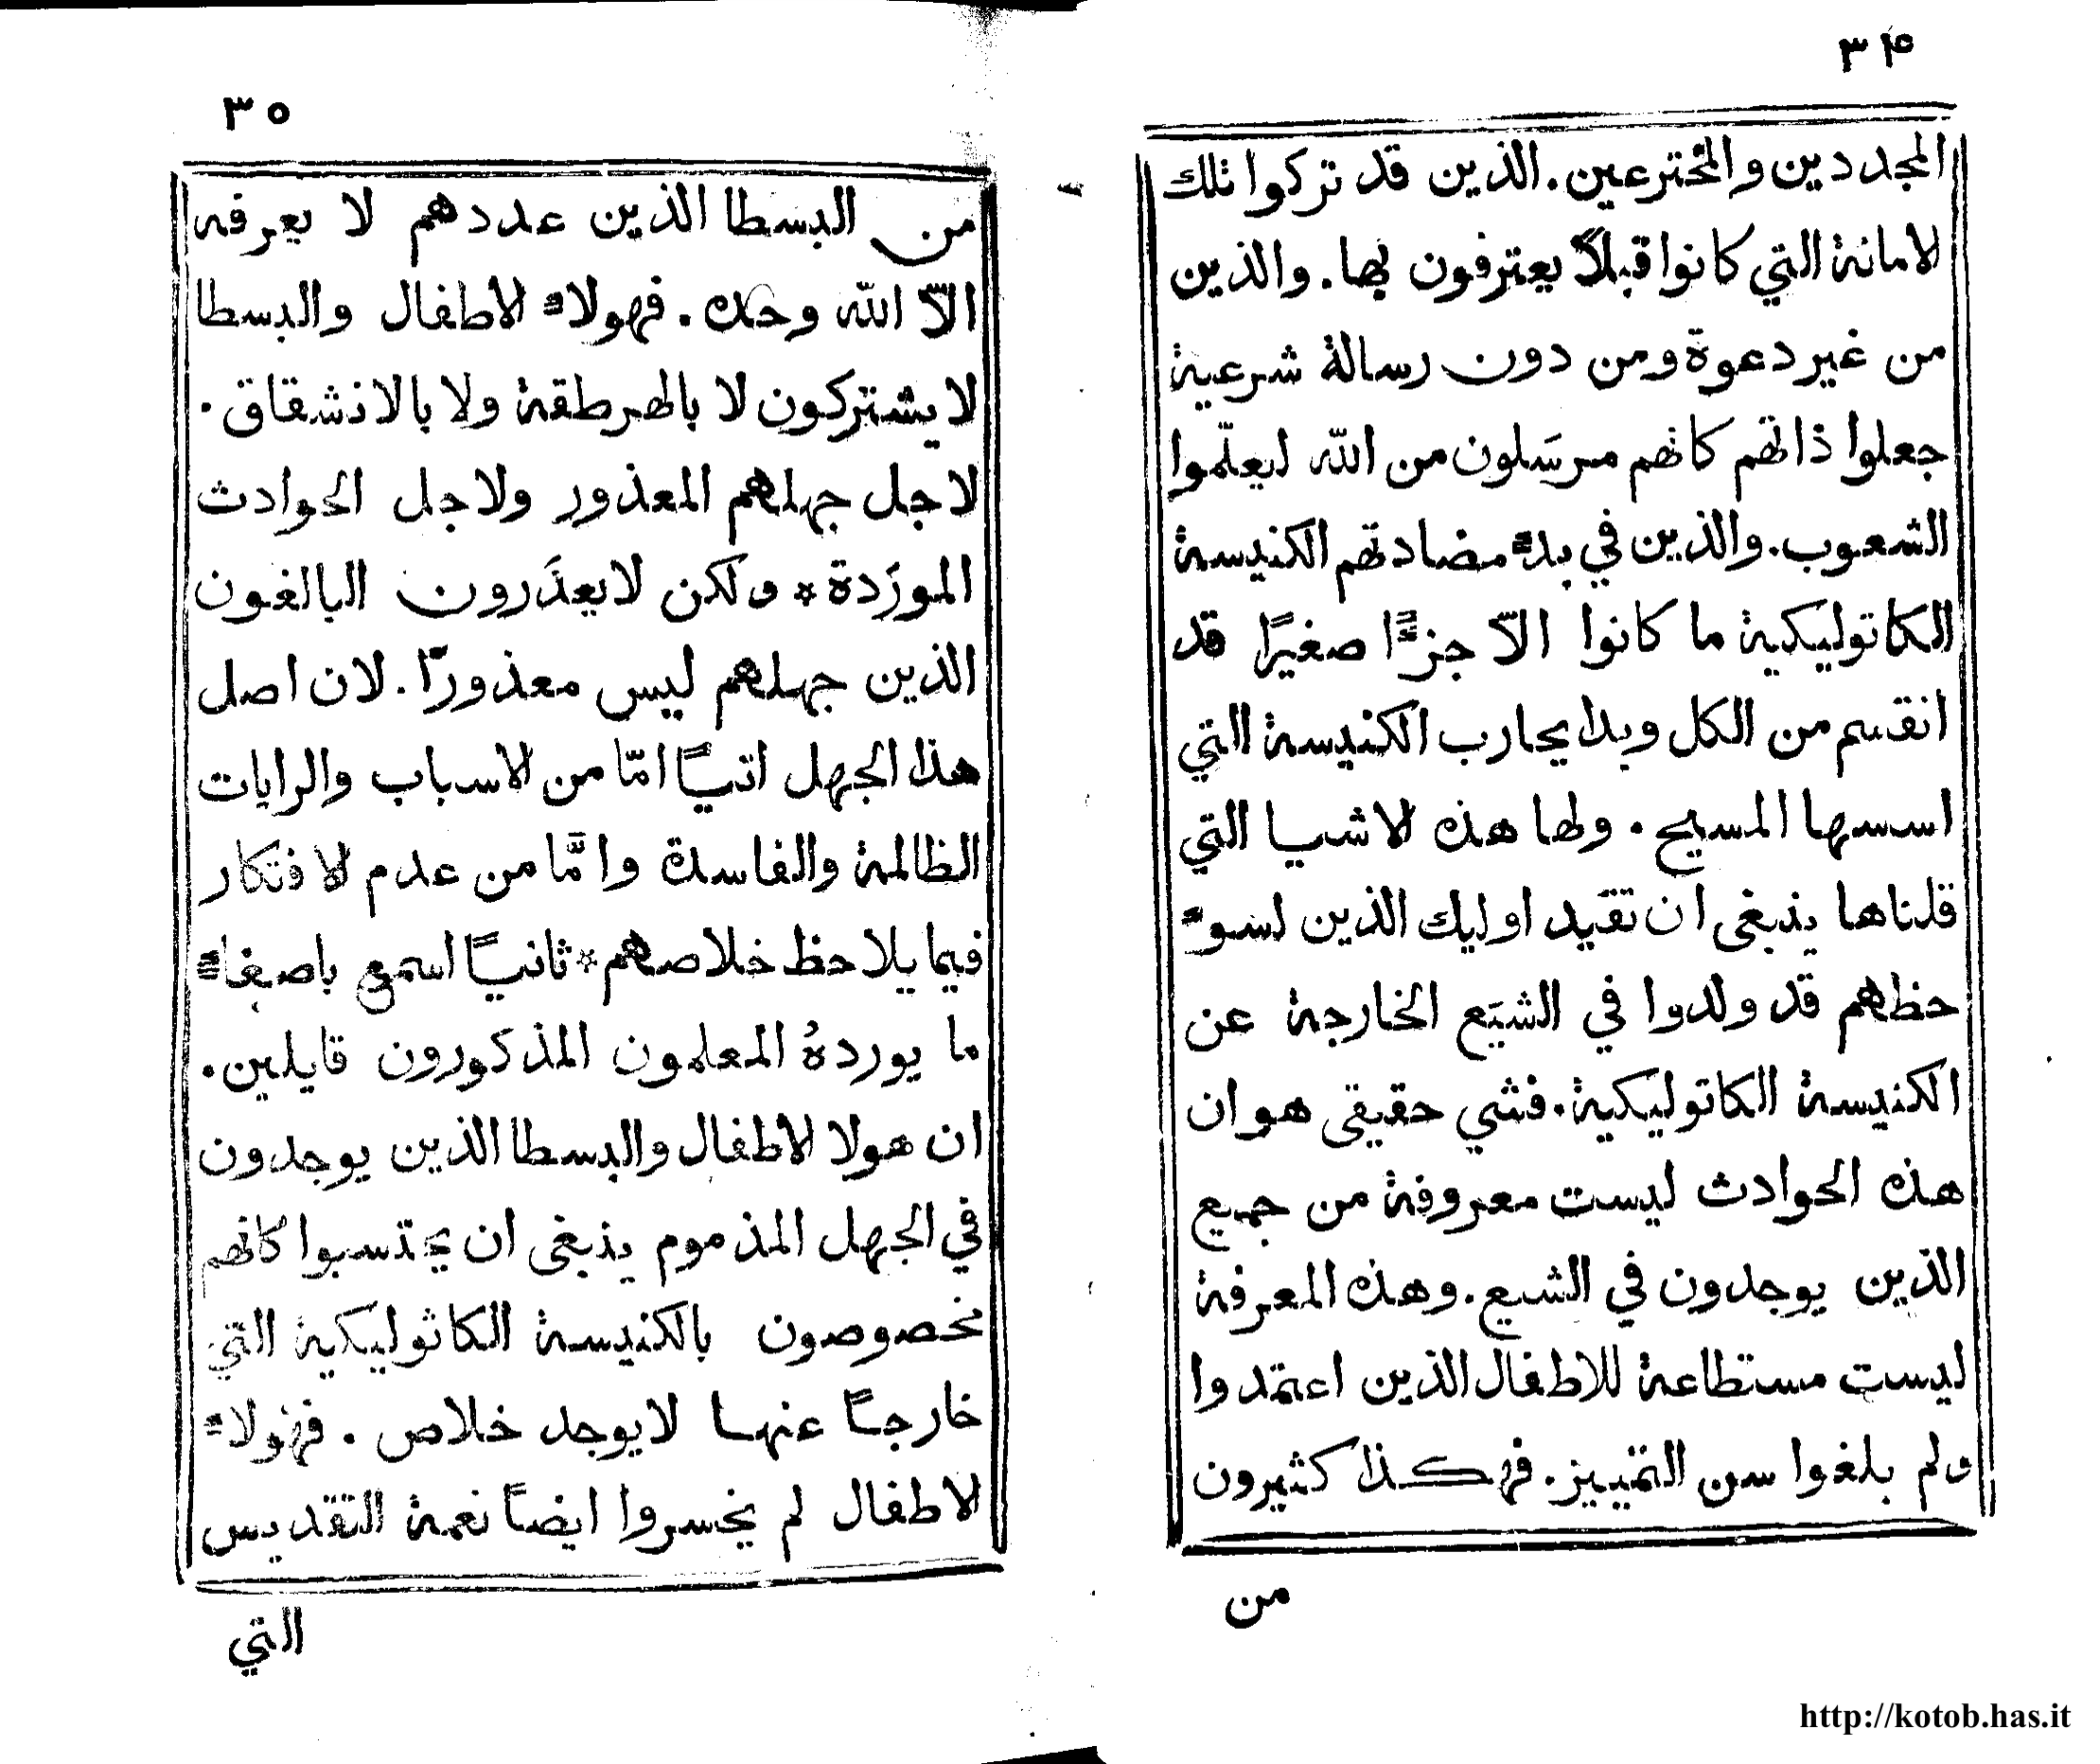 ٣٤
المجددين والمخترعين. الذين قد تركوا تلك
الامانة التي كانوا قبلاً يعترفون بها. والذين
من غير دعوة ومن دون رسالة شرعية
جعلوا ذاتهم كانهم مرسَلون من اللّه ليعلّموا
الشعوب. والذين في بدء مضادتهم الكنيسة
الكاتوليكية ما كانوا الاّ جزءًا صغيرًا قد
انقسم من الكل وبدا يحارب الكنيسة التي
اسسها المسيح. ولها هذه الاشيا التي
قلناها ينبغي ان تقيد اوليك الذين لسوء
حظهم قد ولدوا في الشيَع الخارجة عن
الكنيسة الكاتوليكية. فشي حقيقي هو ان
هذه الحوادث ليست معروفة من جميع
الذين يوجدون في الشيع. وهذه المعرفة
ليست مستطاعة للاطفال الذين اعتمدوا
ولم بلغوا سن التمييز. فهكذا كثيرون
من
٣٥
من البسطا الذين عددهم لا يعرفه
الاّ اللّه وحده. فهولاء الاطفال والبسطا
لا يشتركون لا بالهرطقة ولا بالانشقاق.
لاجل جهلهم المعذور ولاجل الحوادث
المورَدة * ولكن لا يعذَرون البالغون
الذين جهلهم ليس معذورًا. لان اصل
هذا الجهل اتيًا امّا من الاسباب والرايات
الظالمة والفاسدة وامَّا من عدم الافتكار
فيما يلاحظ خلاصهم * ثانيًا اسمع باصغاء
ما يوردهُ المعلمون المذكورون قايلين.
ان هولا الاطفال والبسطا الذين يوجدون
في الجهل المذموم ينبغي ان يحتسبوا كانهم
مخصوصون بالكنيسة الكاثوليكية التي
خارجًا عنها لا يوجد خلاص. فهولاء
الاطفال لم يخسروا ايضًا نعمة التقديس
التي
http://kotob.has.it